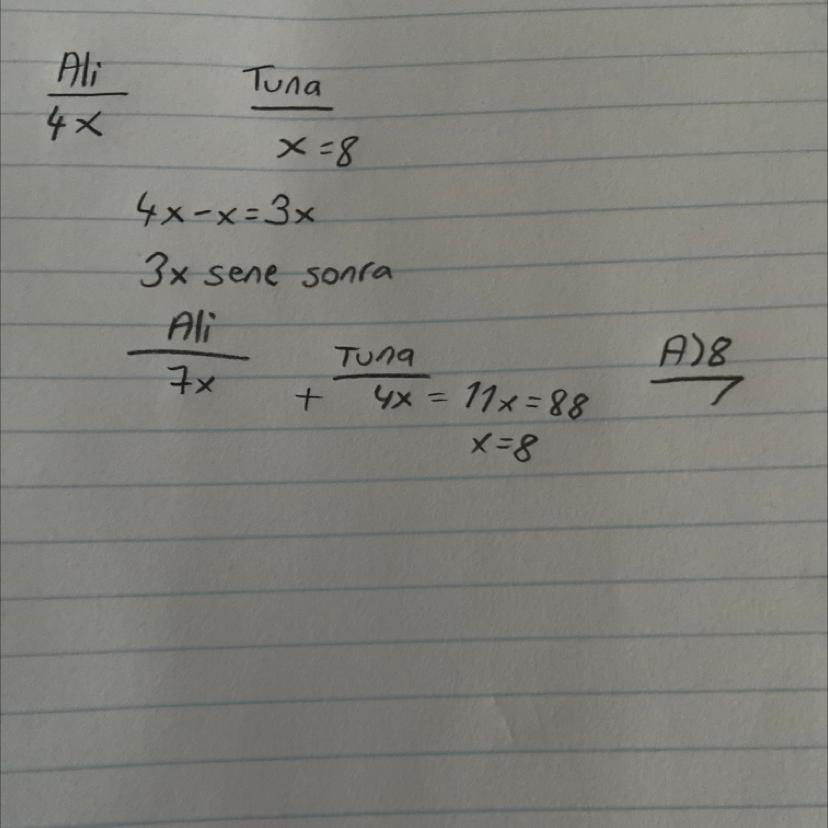 Ali Tuna
4x x=8
4x-x=3x
3x sene sonra
Ali Tuna A)8
7x + 4x = 11x=88
x=8